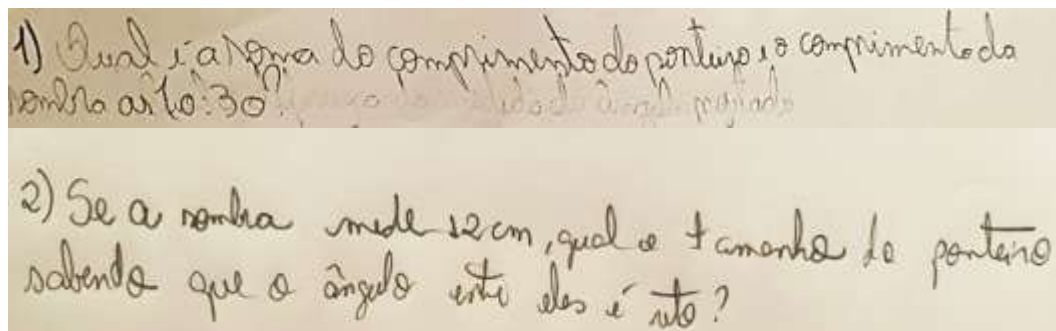 1) Qual é a soma do comprimento do ponteiro e o comprimento da
sombra às 10:30?
2) Se a sombra mede 12 cm, qual o tamanho do ponteiro
sabendo que o ângulo entre eles é reto?